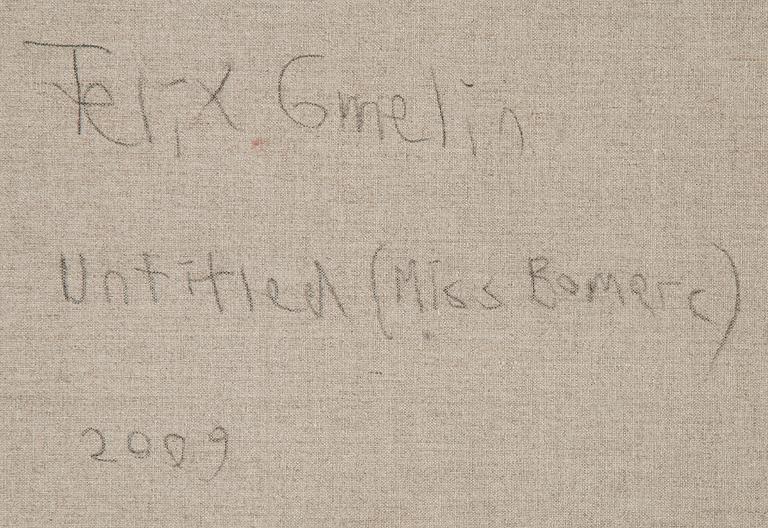 Felix Gmelin
Untitled (Miss Bomarc)
2009